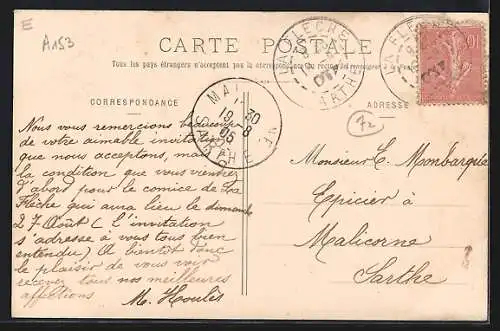 E
A153
CARTE POSTALE
Tous les pays étrangers n'acceptent pas la correspondance
CORRESPONDANCE
ADRESSE
LA FLECHE
SARTHE
LA FLECHE
10
MAL
19 30
8
05
SARTHE
72
Nous vous remercions beaucoup
de votre aimable invitation
que nous acceptons, mais à
la condition que vous viendrez
d'abord pour le comice de La
Flèche qui aura lieu le dimanche
27 Août (l'invitation
s'adresse à vous tous bien
entendu) A bientôt donc
le plaisir de vous voir
recevez tous nos meilleures
affections
M. Houlès
Monsieur E. Mombarque
Epicier à
Malicorne
Sarthe